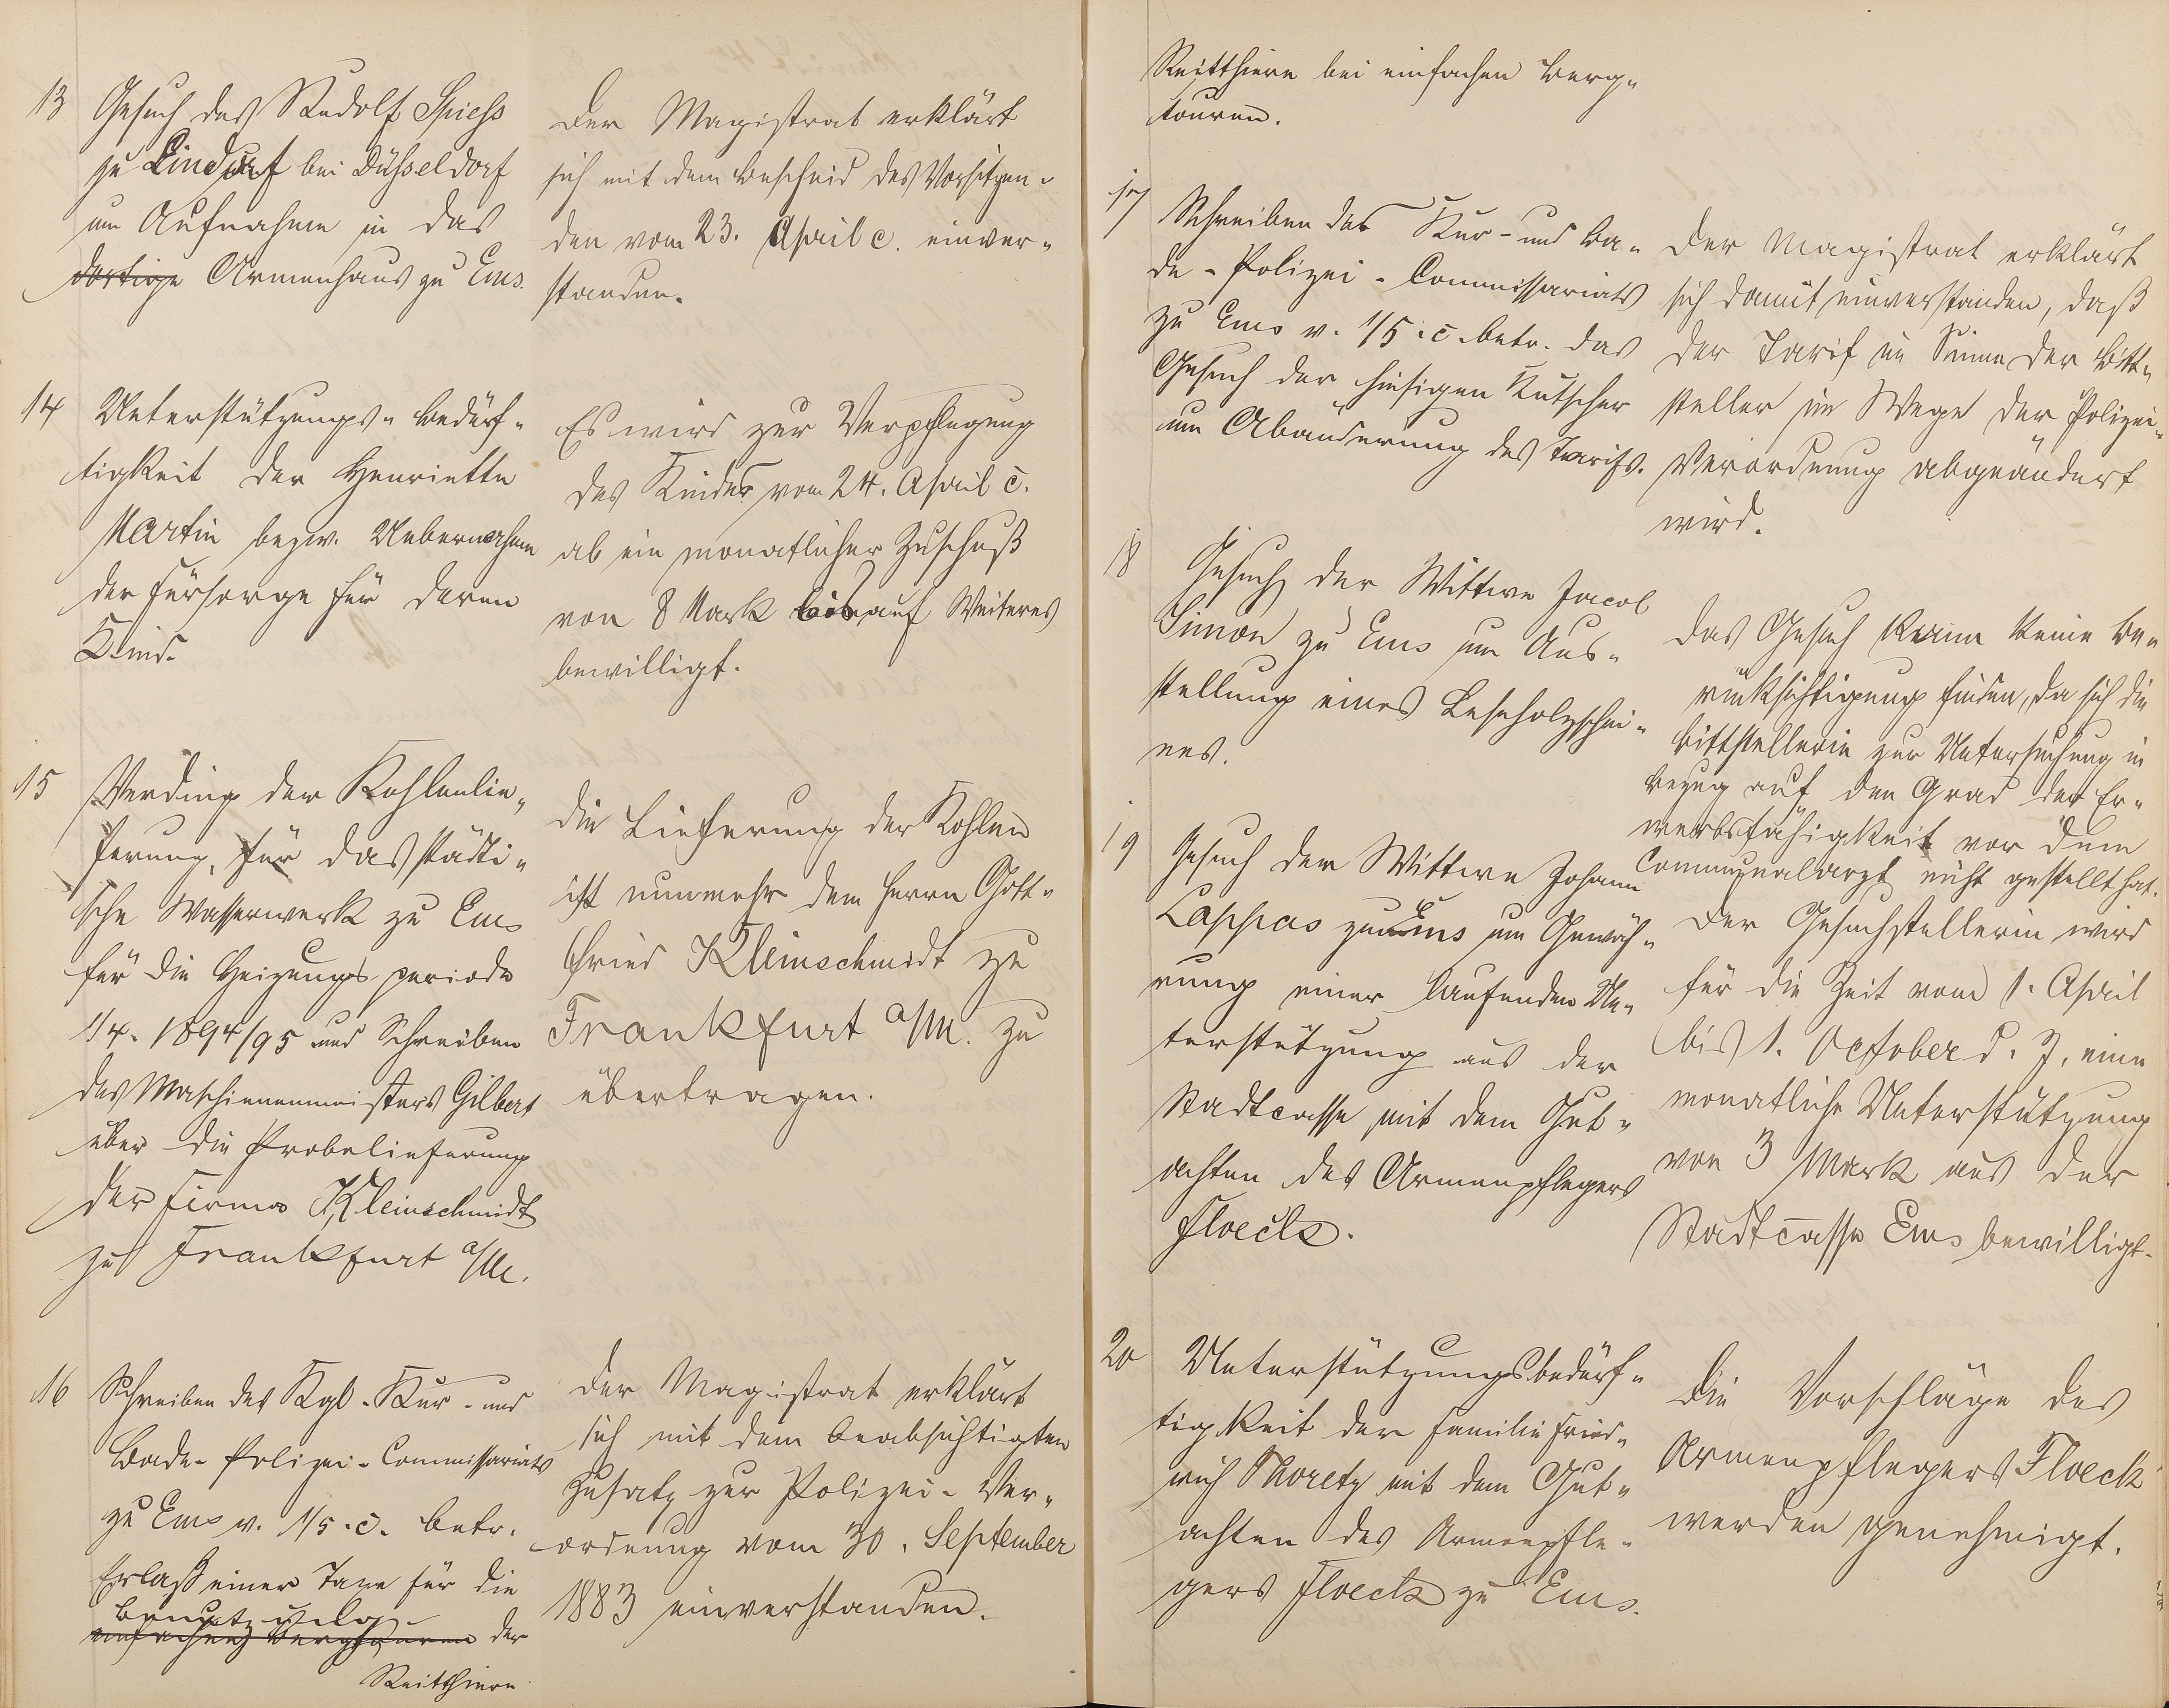 13
Gesuch des Rudolf Spiess
zu Lindorf bei Düsseldorf
um Aufnahme in das
dortige Armenhaus zu Ems.
Der Magistrat erklärt
sich mit dem Bescheid des Vorsitzen-
den vom 23. April c. einver-
standen.
14
Unterstützungs-Bedürf-
tigkeit der Henriette
Martin bezw. Uebernahme
der Fürsorge für deren
Kind.
Es wird zur Verpflegung
des Kindes vom 24. April c.
ab ein monatlicher Zuschuß
von 8 Mark bis auf Weiteres
bewilligt.
15
Verding der Kohlenlie-
ferung, für das städti-
sche Wasserwerk zu Ems
für die Heizungsperiode
1/4. 1894/95 und Schreiben
des Maschinenmeisters Gilbert
über die Probelieferung
der Firma Kleinschmidt
zu Frankfurt a/M.
Die Lieferung der Kohlen
ist nunmehr dem Herrn Gott-
fried Kleinschmidt zu
Frankfurt a/M. zu
übertragen.
16
Schreiben des Kgl. Kur- und
Bade-Polizei-Commissariats
zu Ems v. 1/5. c. betr.
Erlaß einer Taxe für die
einfachen Bergtouren der
Reitthiere
Der Magistrat erklärt
sich mit dem beabsichtigten
Zusatz zur Polizei-Ver-
ordnung vom 30. September
1883 einverstanden.
Reitthiere bei einfachen Berg-
touren.
17
Schreiben des Kur- und Ba-
de-Polizei-Commissariats
zu Ems v. 1/5. c. betr. das
Gesuch der hiesigen Kutscher
um Abänderung des Tarifs.
Der Magistrat erklärt
sich damit einverstanden, daß
der Tarif im Sinne der Bitt-
steller im Wege der Polizei-
Verordnung abgeändert
wird.
18
Gesuch der Wittwe Jacob
Simon zu Ems um Aus-
stellung eines Leseholzschei-
nes.
Das Gesuch kann keine Be-
rücksichtigung finden, da sich die
Bittstellerin zur Untersuchung in
Bezug auf den Grad der Er-
werbsfähigkeit vor dem
Communalarzt nicht gestellt hat.
19
Gesuch der Wittwe Johann
Cappas zu Ems um Gewäh-
rung einer laufenden Un-
terstützung aus der
Stadtcasse mit dem Gut-
achten des Armenpflegers
Floeck.
Der Gesuchstellerin wird
für die Zeit vom 1. April
bis 1. October d. J. eine
monatliche Unterstützung
von 3 Mark aus der
Stadtcasse Ems bewilligt.
20
Unterstützungsbedürf-
tigkeit der Familie Fried-
rich Thorety mit dem Gut-
achten des Armenpfle-
gers Floeck zu Ems.
Die Vorschläge des
Armenpflegers Floeck
werden genehmigt.